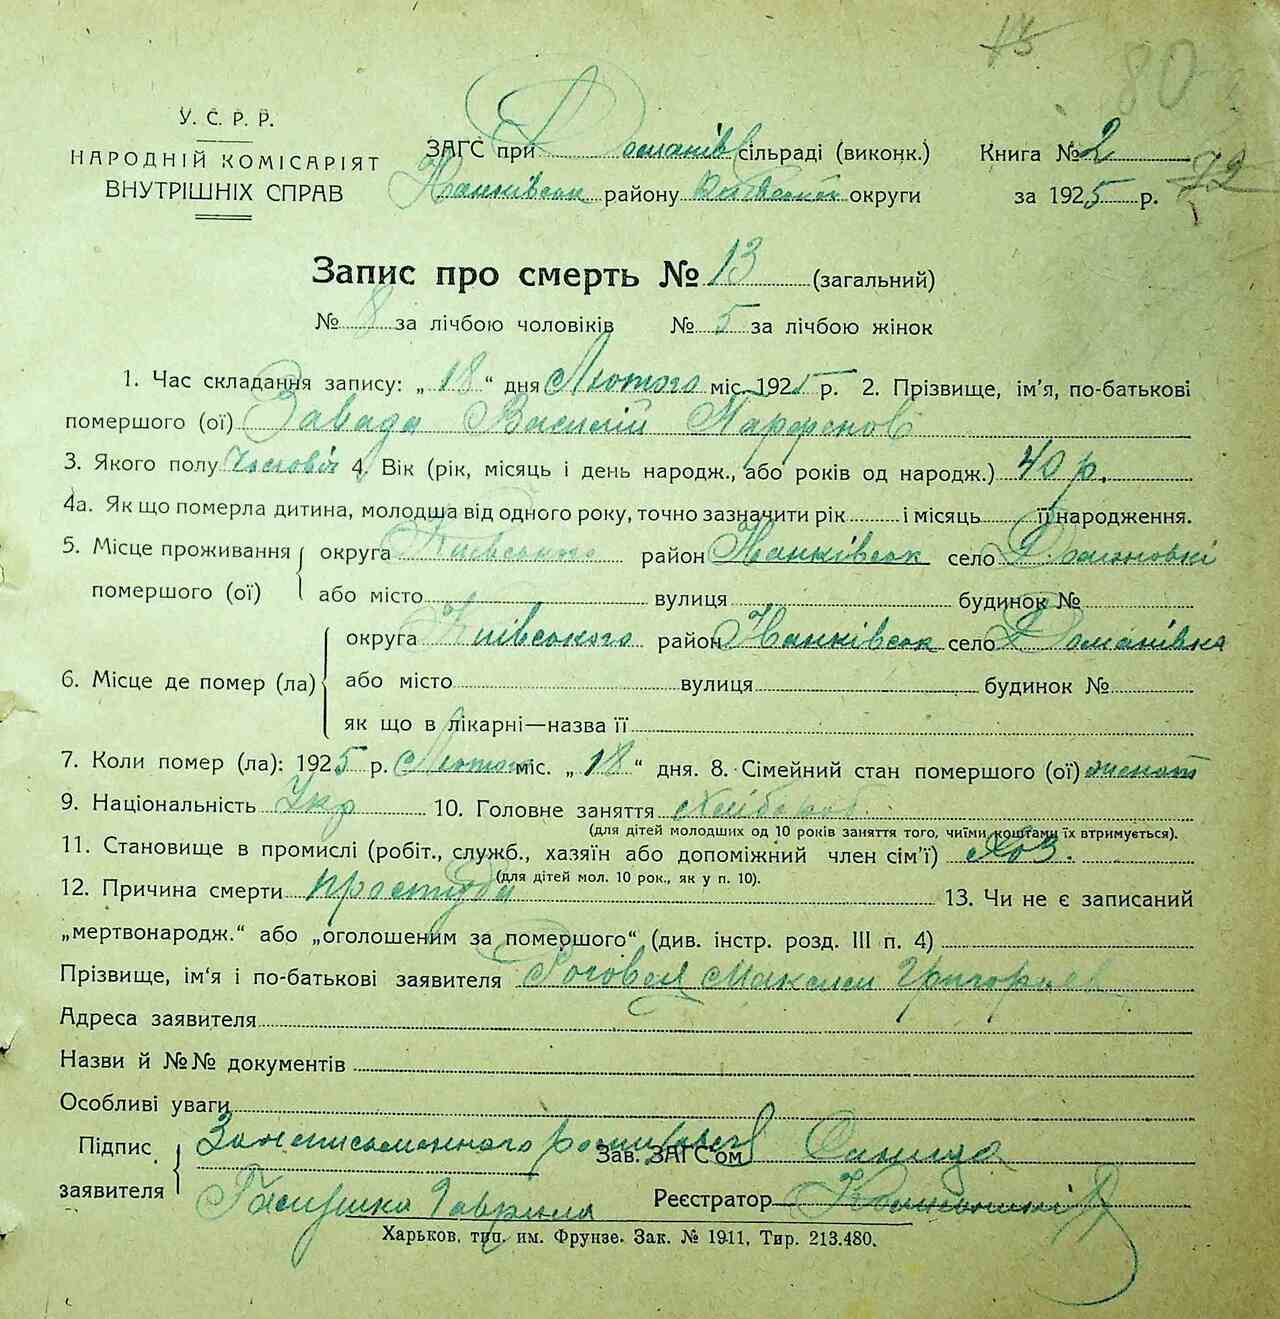 У. С. Р. Р.
НАРОДНІЙ КОМІСАРІЯТ
ВНУТРІШНІХ СПРАВ
ЗАГС при Доманів сільраді (виконк.)
Книга № 2
72
80
Іванківськ району Київської округи
за 1925 р.
Запис про смерть № 13 (загальний)
№ 8 за лічбою чоловіків № 5 за лічбою жінок
1. Час складання запису: „ 18 “ дня Лютого міс. 1925 р. 2. Прізвище, ім'я, по-батькові
помершого (ої) Завада Василій Парфенов
3. Якого полу 4. Вік (рік, місяць і день народж., або років од народж.) 40 р.
4а. Як що померла дитина, молодша від одного року, точно зазначити рік і місяць її народження.
5. Місце проживання помершого (ої) округа Київського район Іванківськ село
або місто вулиця будинок №
6. Місце де помер (ла) округа Київського район Іванківськ село Доманівка
або місто вулиця будинок №
як що в лікарні—назва її
7. Коли помер (ла): 1925 р. Лютого міс. „ 18 “ дня. 8. Сімейний стан помершого (ої) женат
9. Національність Укр 10. Головне заняття Хлібороб.
(для дітей молодших од 10 років заняття того, чиїми коштами їх втримується).
11. Становище в промислі (робіт., служб., хазяїн або допоміжний член сім'ї) Хоз.
(для дітей мол. 10 рок., як у п. 10).
12. Причина смерти простуда 13. Чи не є записаний
„мертвонародж.“ або „оголошеним за помершого“ (див. інстр. розд. III п. 4)
Прізвище, ім'я і по-батькові заявителя Роговец Максим Григорьев
Адреса заявителя
Назви й №№ документів
Особливі уваги
Підпис заявителя За неписьменного росписавсь
Зав. ЗАГС'ом
Гаврила
Реєстратор
Харьков, тип. им. Фрунзе. Зак. № 1911, Тир. 213.480.